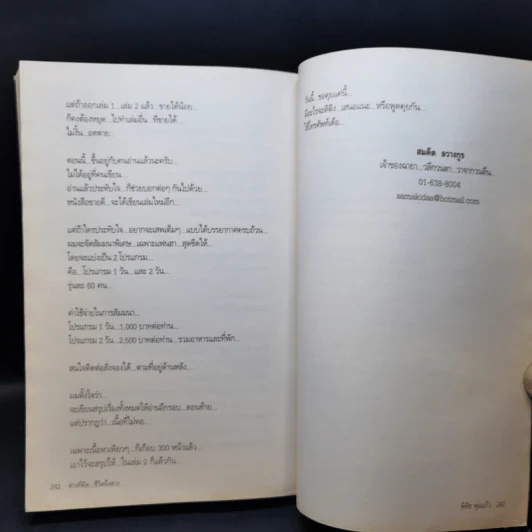 แต่ถ้าออกเล่ม 1...เล่ม 2 แล้ว...ขายได้น้อย...
ก็คงต้องหยุด...ไปทำเล่มอื่น...ที่ขายได้...
ไม่งั้น...อดตาย...
ตอนนี้...ขึ้นอยู่กับคนอ่านแล้วนะครับ...
ไม่ได้อยู่ที่คนเขียน...
อ่านแล้วประทับใจ...ก็ช่วยบอกต่อๆ กันไปด้วย...
หนังสือขายดี...จะได้เขียนเล่มใหม่อีก...
แต่ถ้าใครประทับใจ...อยากจะเสพเต็มๆ...แบบได้บรรยากาศครบถ้วน...
ผมจะจัดสัมมนาพิเศษ...เฉพาะแฟนฮา...สุดขีดให้...
โดยจะแบ่งเป็น 2 โปรแกรม...
คือ...โปรแกรม 1 วัน...และ 2 วัน...
รุ่นละ 60 คน...
ค่าใช้จ่ายในการสัมมนา...
โปรแกรม 1 วัน...1,000 บาทต่อท่าน...
โปรแกรม 2 วัน...2,500 บาทต่อท่าน...รวมอาหารและที่พัก...
สนใจติดต่อสั่งจองได้...ตามที่อยู่ด้านหลัง...
ผมตั้งใจว่า...
จะเขียนสรุปเรื่องทั้งหมดให้อ่านอีกรอบ...ตอนท้าย...
แต่ปรากฏว่า...เนื้อที่ไม่พอ...
เฉพาะเนื้อหาเพียวๆ...ก็เกือบ 300 หน้าแล้ว...
เอาไว้จะสรุปให้...ในเล่ม 2 ก็แล้วกัน...
วันนี้...ขอคุยแค่นี้...
มีอะไรจะติติง...เสนอแนะ...หรือพูดคุยกัน...
ใช้โทรศัพท์เด้อ...
สมคิด ลวางกูร
01-638-8004
samakidaa@hotmail.com